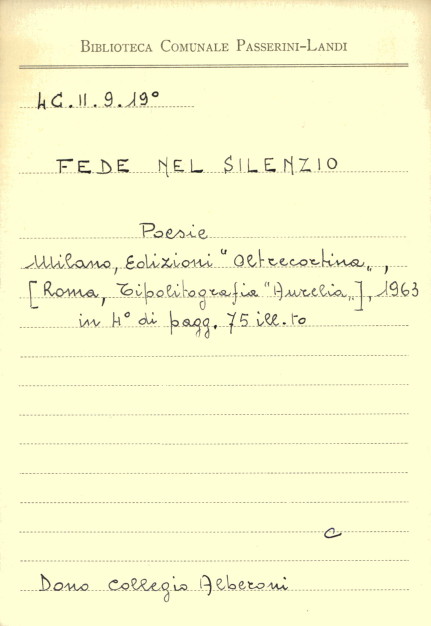 BIBLIOTECA COMUNALE PASSERINI-LANDI
4C.II.9.19°
FEDE NEL SILENZIO
Poesie
Milano, Edizioni "Oltrecortina„,
[Roma, Tipolitografia "Aurelia„], 1963
in 4° di pagg. 75 ill.to
C
Dono Collegio Alberoni